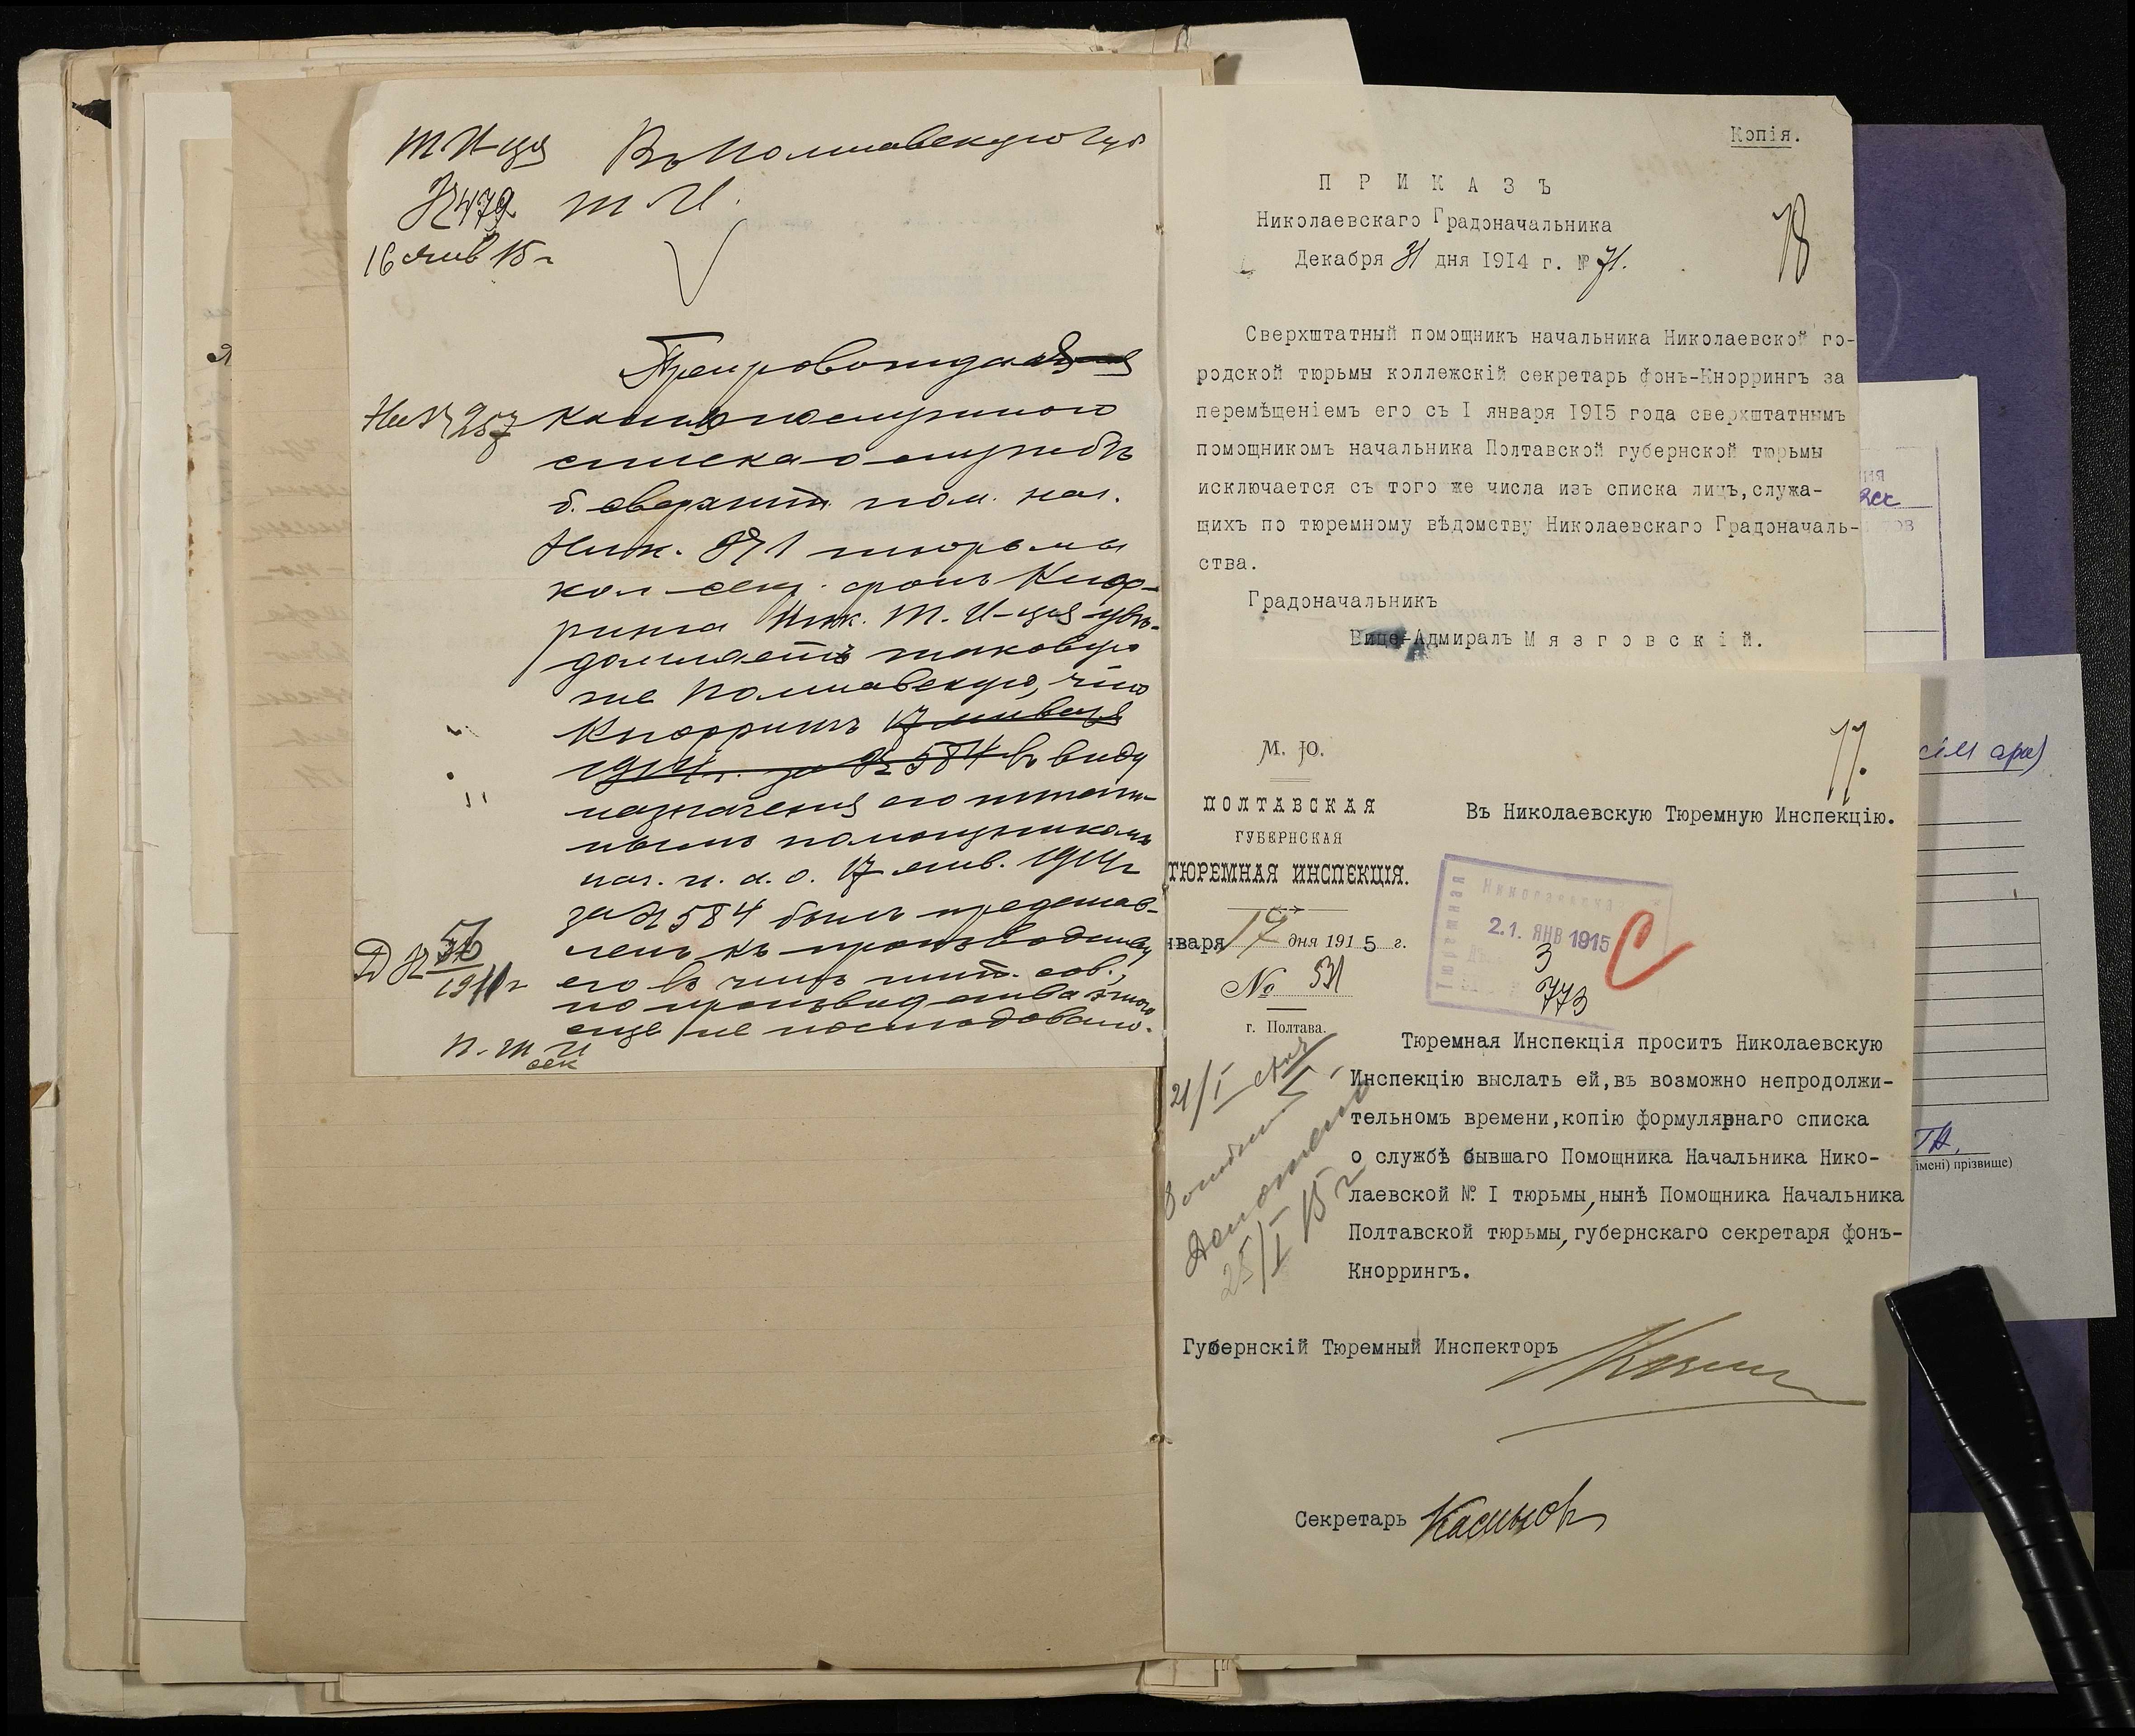 Т И-ція Въ Полтавскую Губ
№ 479 Т. И.
16 янв 15 г
Препровождая
На № 257 копію послужного
списка о службѣ
б. сверхшт. пом. нач.
Ник. № 1 тюрьмы
кол. секр. фонъ Кнор-
ринга Ник. Т. И-ція увѣ-
домляетъ таковую
же Полтавскую, что
Кноррингъ 17 января
1914 г. за № 584 въ виду
назначенія его штат-
нымъ помощникомъ
нач. и. д. о. 17 янв. 1914 г
за № 584 былъ представ-
ленъ къ производству
его въ чинъ тит. сов.,
но производства этого
еще не послѣдовало.
Д № 56
191 г
П. Т И
сек
Копія.
П Р И К А З Ъ
Николаевскаго Градоначальника
Декабря 31 дня 1914 г. № 71.
18
Сверхштатный помощникъ начальника Николаевской го-
родской тюрьмы коллежскій секретарь фонъ-Кноррингъ за
перемѣщеніемъ его съ I января 1915 года сверхштатнымъ
помощникомъ начальника Полтавской губернской тюрьмы
исключается съ того же числа изъ списка лицъ, служа-
щихъ по тюремному вѣдомству Николаевскаго Градоначаль-
ства.
Градоначальникъ
Вице-Адмиралъ М я з г о в с к і й.
17.
М. Ю.
ПОЛТАВСКАЯ
ГУБЕРНСКАЯ
ТЮРЕМНАЯ ИНСПЕКЦІЯ.
нваря 19 дня 1915 г.
№ 531
г. Полтава.
Въ Николаевскую Тюремную Инспекцію.
Тюремная
Николаевская
21. ЯНВ 1915
3
773
С
21/I
Исполнено
25/I 15 г
Тюремная Инспекція проситъ Николаевскую
Инспекцію выслать ей, въ возможно непродолжи-
тельномъ времени, копію формулярнаго списка
о службѣ бывшаго Помощника Начальника Нико-
лаевской № I тюрьмы, нынѣ Помощника Начальника
Полтавской тюрьмы, губернскаго секретаря фонъ-
Кноррингъ.
Губернскій Тюремный Инспекторъ
Секретарь
імені) прізвище)